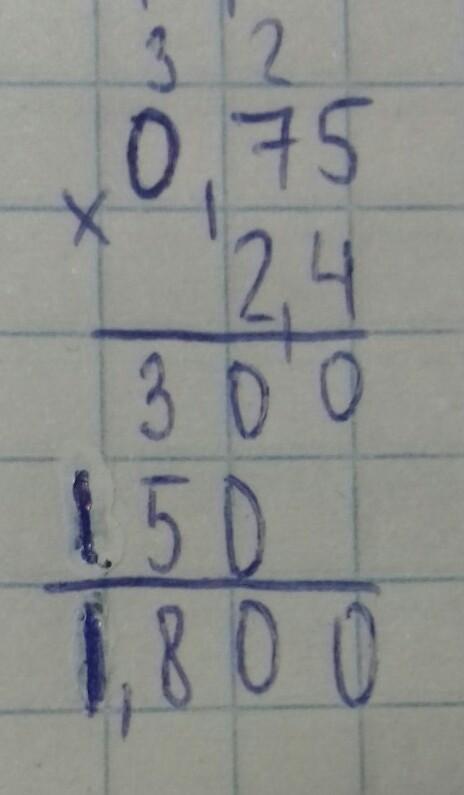 3 2
0,75
×
2,4
300
150
1,800